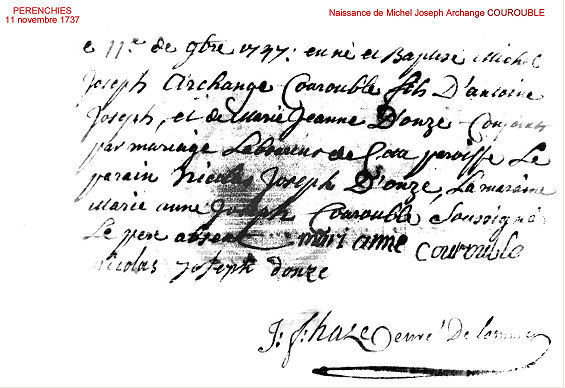 PERENCHIES
11 novembre 1737
Naissance de Michel Joseph Archange COUROUBLE
Le 11e de 9bre 1737 est né et Baptisé Michel
Joseph Archange Courouble fils D'antoine
Joseph, et de Marie Jeanne Donze Conjoints
par mariage Laboureur de Cette paroisse Le
parain Nicolas Joseph D'onze, La maraine
Marie anne Joseph Courouble Soussigné
Le pere absent mari anne courouble
nicolas Joseph donze
J: f: haze Curé De